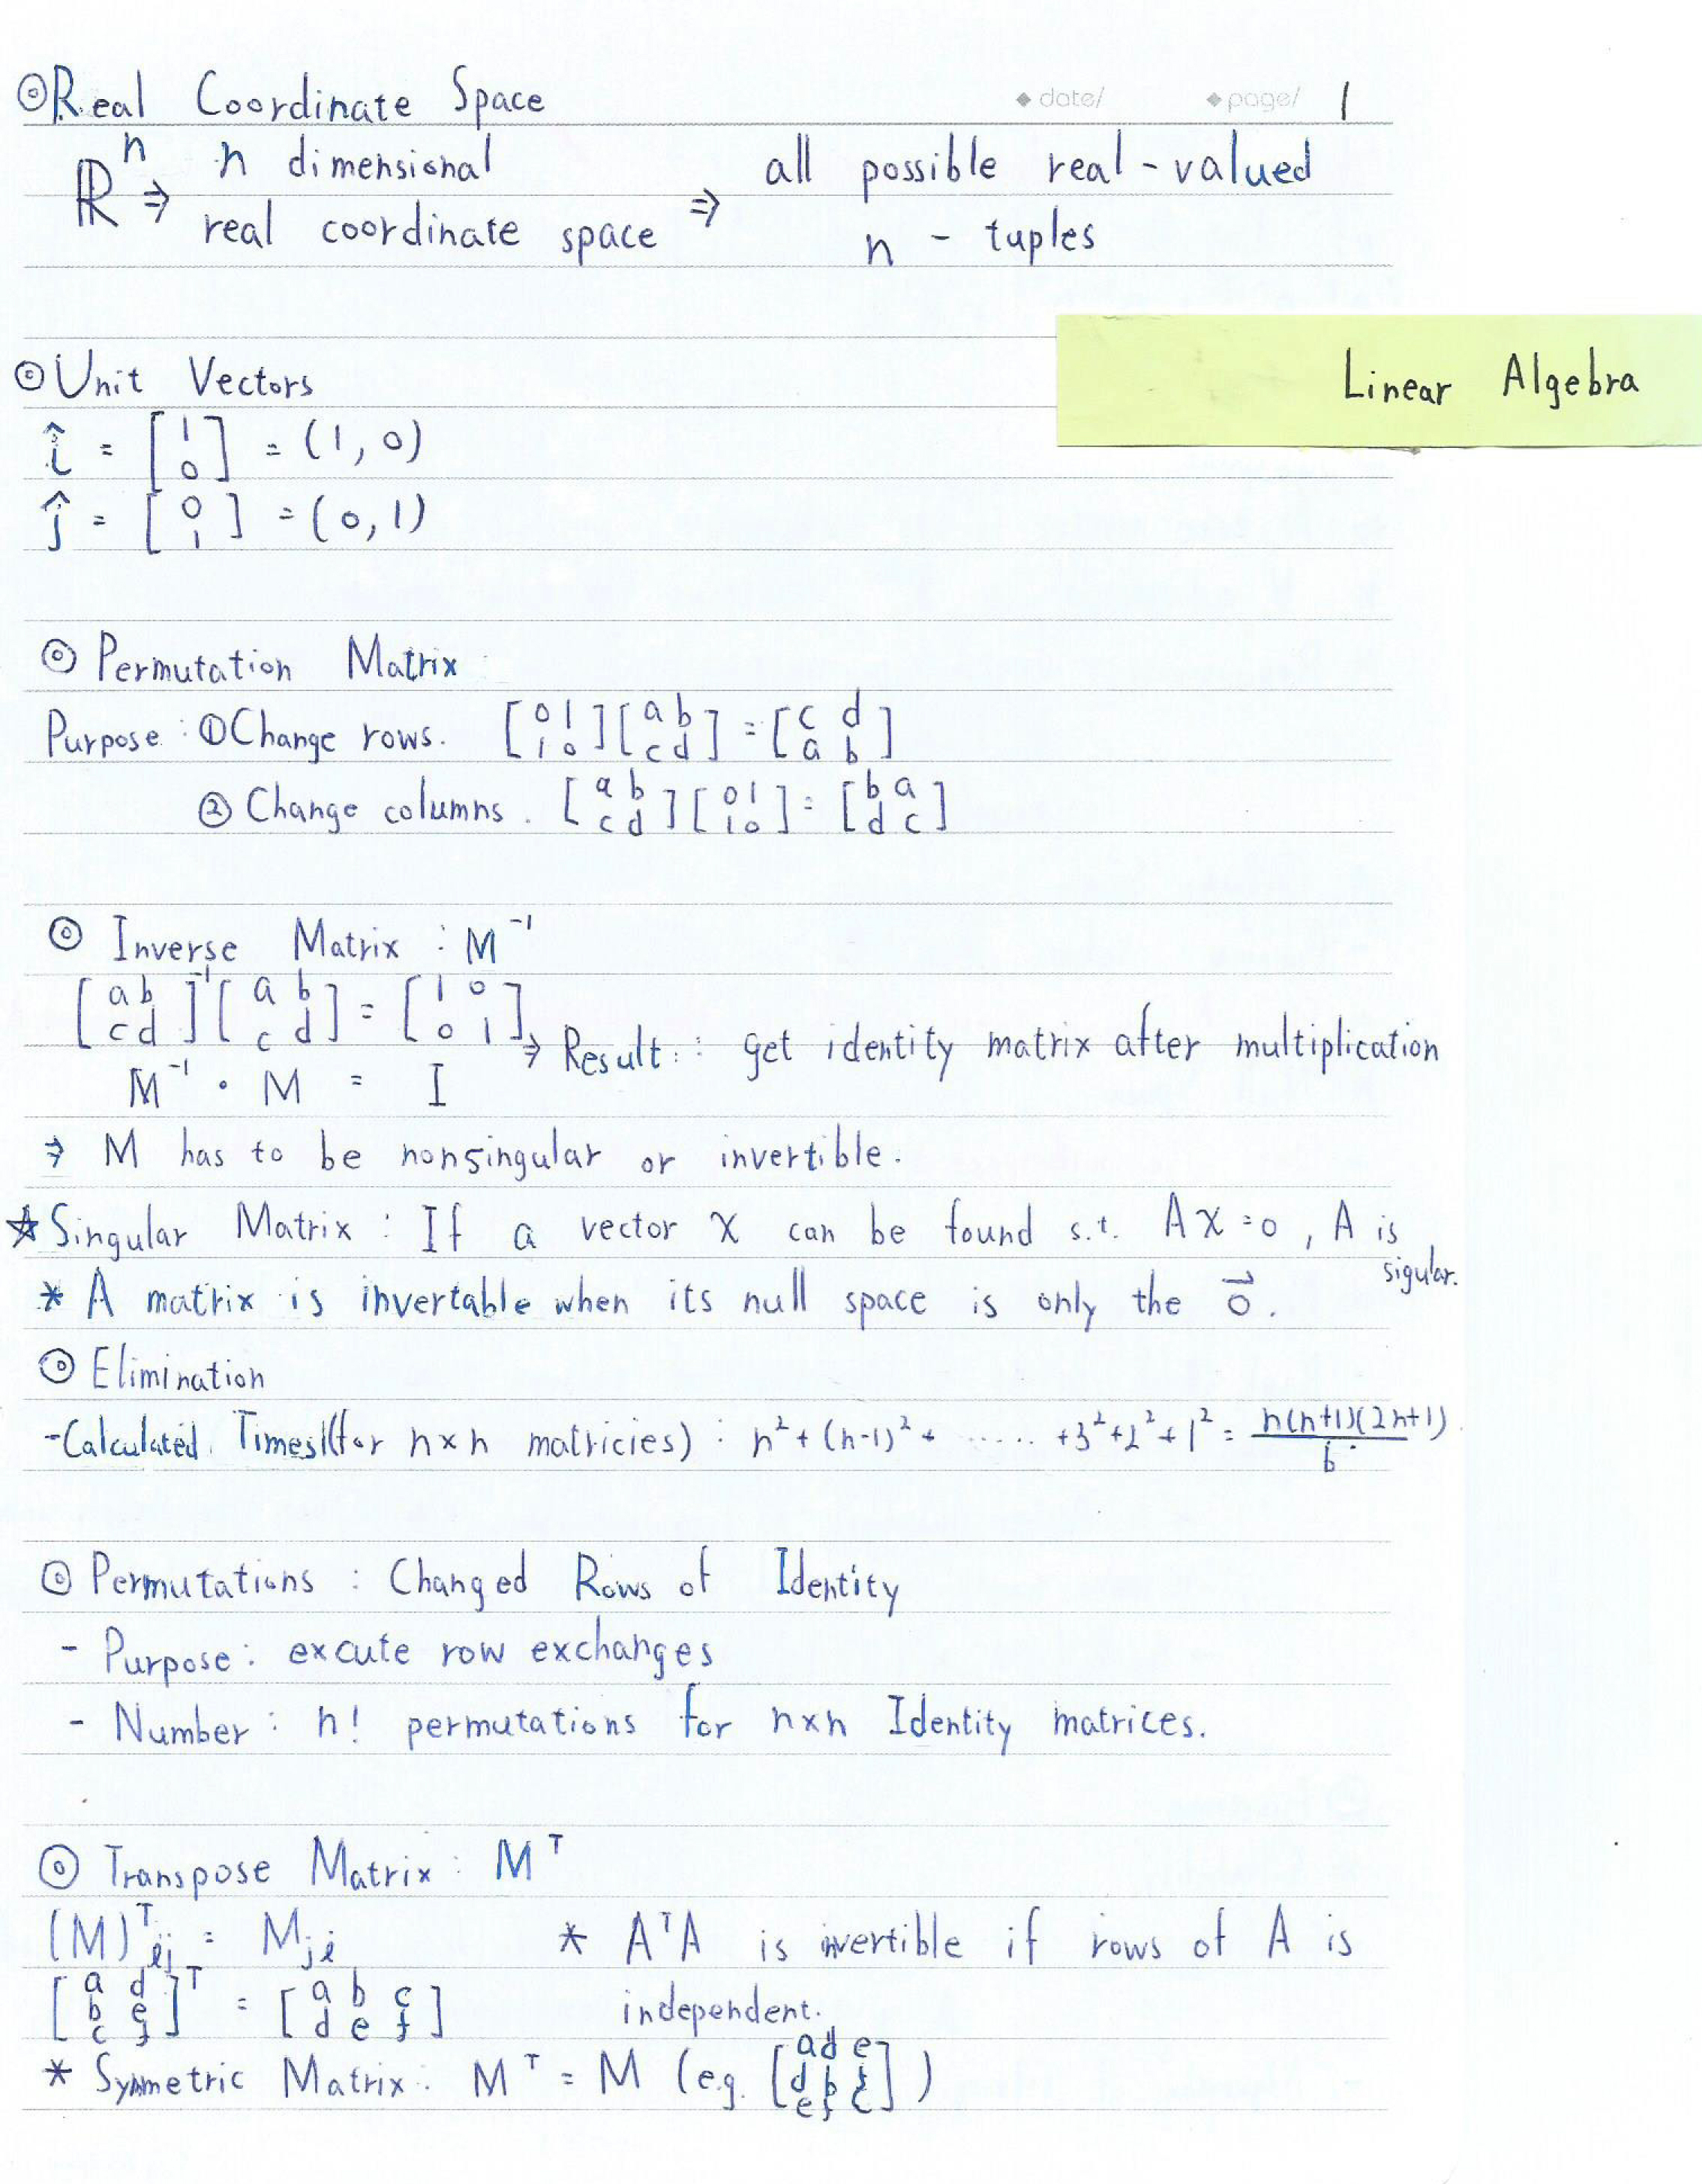 ◎Real Coordinate Space ◆date/ ◆page/ 1
ℝⁿ ⇒ n dimensional real coordinate space ⇒ all possible real-valued n-tuples
Linear Algebra
◎Unit Vectors
î = [1 0] = (1, 0)
ĵ = [0 1] = (0, 1)
◎ Permutation Matrix
Purpose: ①Change rows. [0 1; 1 0][a b; c d] = [c d; a b]
② Change columns. [a b; c d][0 1; 1 0] = [b a; d c]
◎ Inverse Matrix : M⁻¹
[a b; c d]⁻¹[a b; c d] = [1 0; 0 1]
⇒ Result: get identity matrix after multiplication
M⁻¹ · M = I
⇒ M has to be nonsingular or invertible.
☆Singular Matrix : If a vector X can be found s.t. AX=0, A is sigular.
* A matrix is invertable when its null space is only the 0⃗.
◎ Elimination
-Calculated Times(for n×n matricies) : n²+(n-1)²+ ...... +3²+2²+1² = n(n+1)(2n+1)/6
◎ Permutations : Changed Rows of Identity
- Purpose: excute row exchanges
- Number: n! permutations for n×n Identity matrices.
◎ Transpose Matrix : Mᵀ
(M)ᵀij = Mji * AᵀA is invertible if rows of A is
[a d; b e; c f]ᵀ = [a b c; d e f] independent.
* Symmetric Matrix: Mᵀ = M (e.g. [a d e; d b f; e f c])